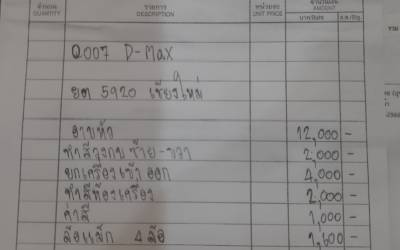 จำนวน รายการ หน่วยละ จำนวนเงิน
QUANTITY DESCRIPTION UNIT PRICE AMOUNT
2007 D-Max
ยด 5920 เชียงใหม่
อาบห้า 12,000 -
ทำสีวงกบ ซ้าย-ขวา 2,000 -
ยกเครื่องเข้า ออก 4,000 -
ทำสีห้องเครื่อง 2,000 -
ค่าสี 1,000 -
ล้อแม็ก 4 ล้อ 1,600 -